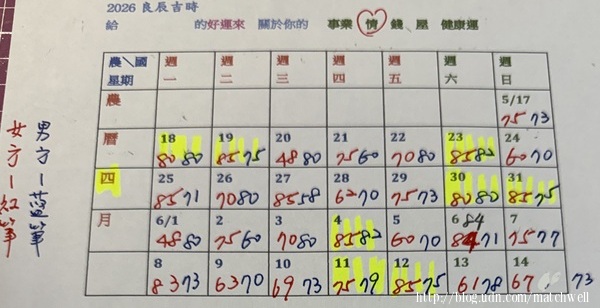 2026 良辰吉時
給 的好運來 關於你的 事業 情 錢 屋 健康運
農\國 週 週 週 週 週 週 週
星期 一 二 三 四 五 六 日
農 5/17
75 73
曆 18 19 20 21 22 23 24
80 80 85 75 48 80 75 60 70 80 85 82 60 70
四 25 26 27 28 29 30 31
85 71 70 80 85 58 62 70 75 73 80 80 85 75
月 6/1 2 3 4 5 6 84 7
48 80 75 60 70 80 85 82 60 70 71 75 77
8 9 10 11 12 13 14
83 73 63 70 69 73 75 79 85 75 61 78 67 73
男方-藍筆
女方-紅筆
http://blog.udn.com/matchwell